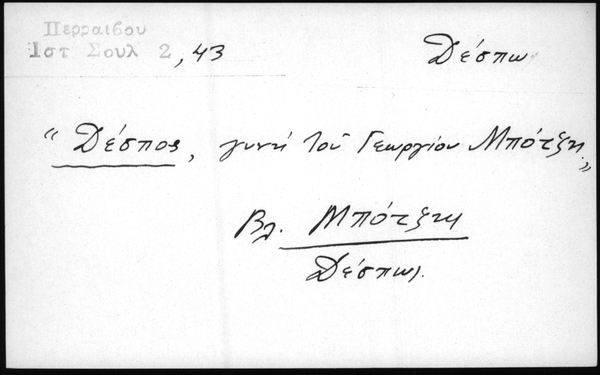 Περραιβου
Ιστ Σουλ 2, 43
Δέσπω
"Δέσπος, γυνή τοῦ Γεωργίου Μπότζη."
Βλ. Μπότζη
Δέσπω.